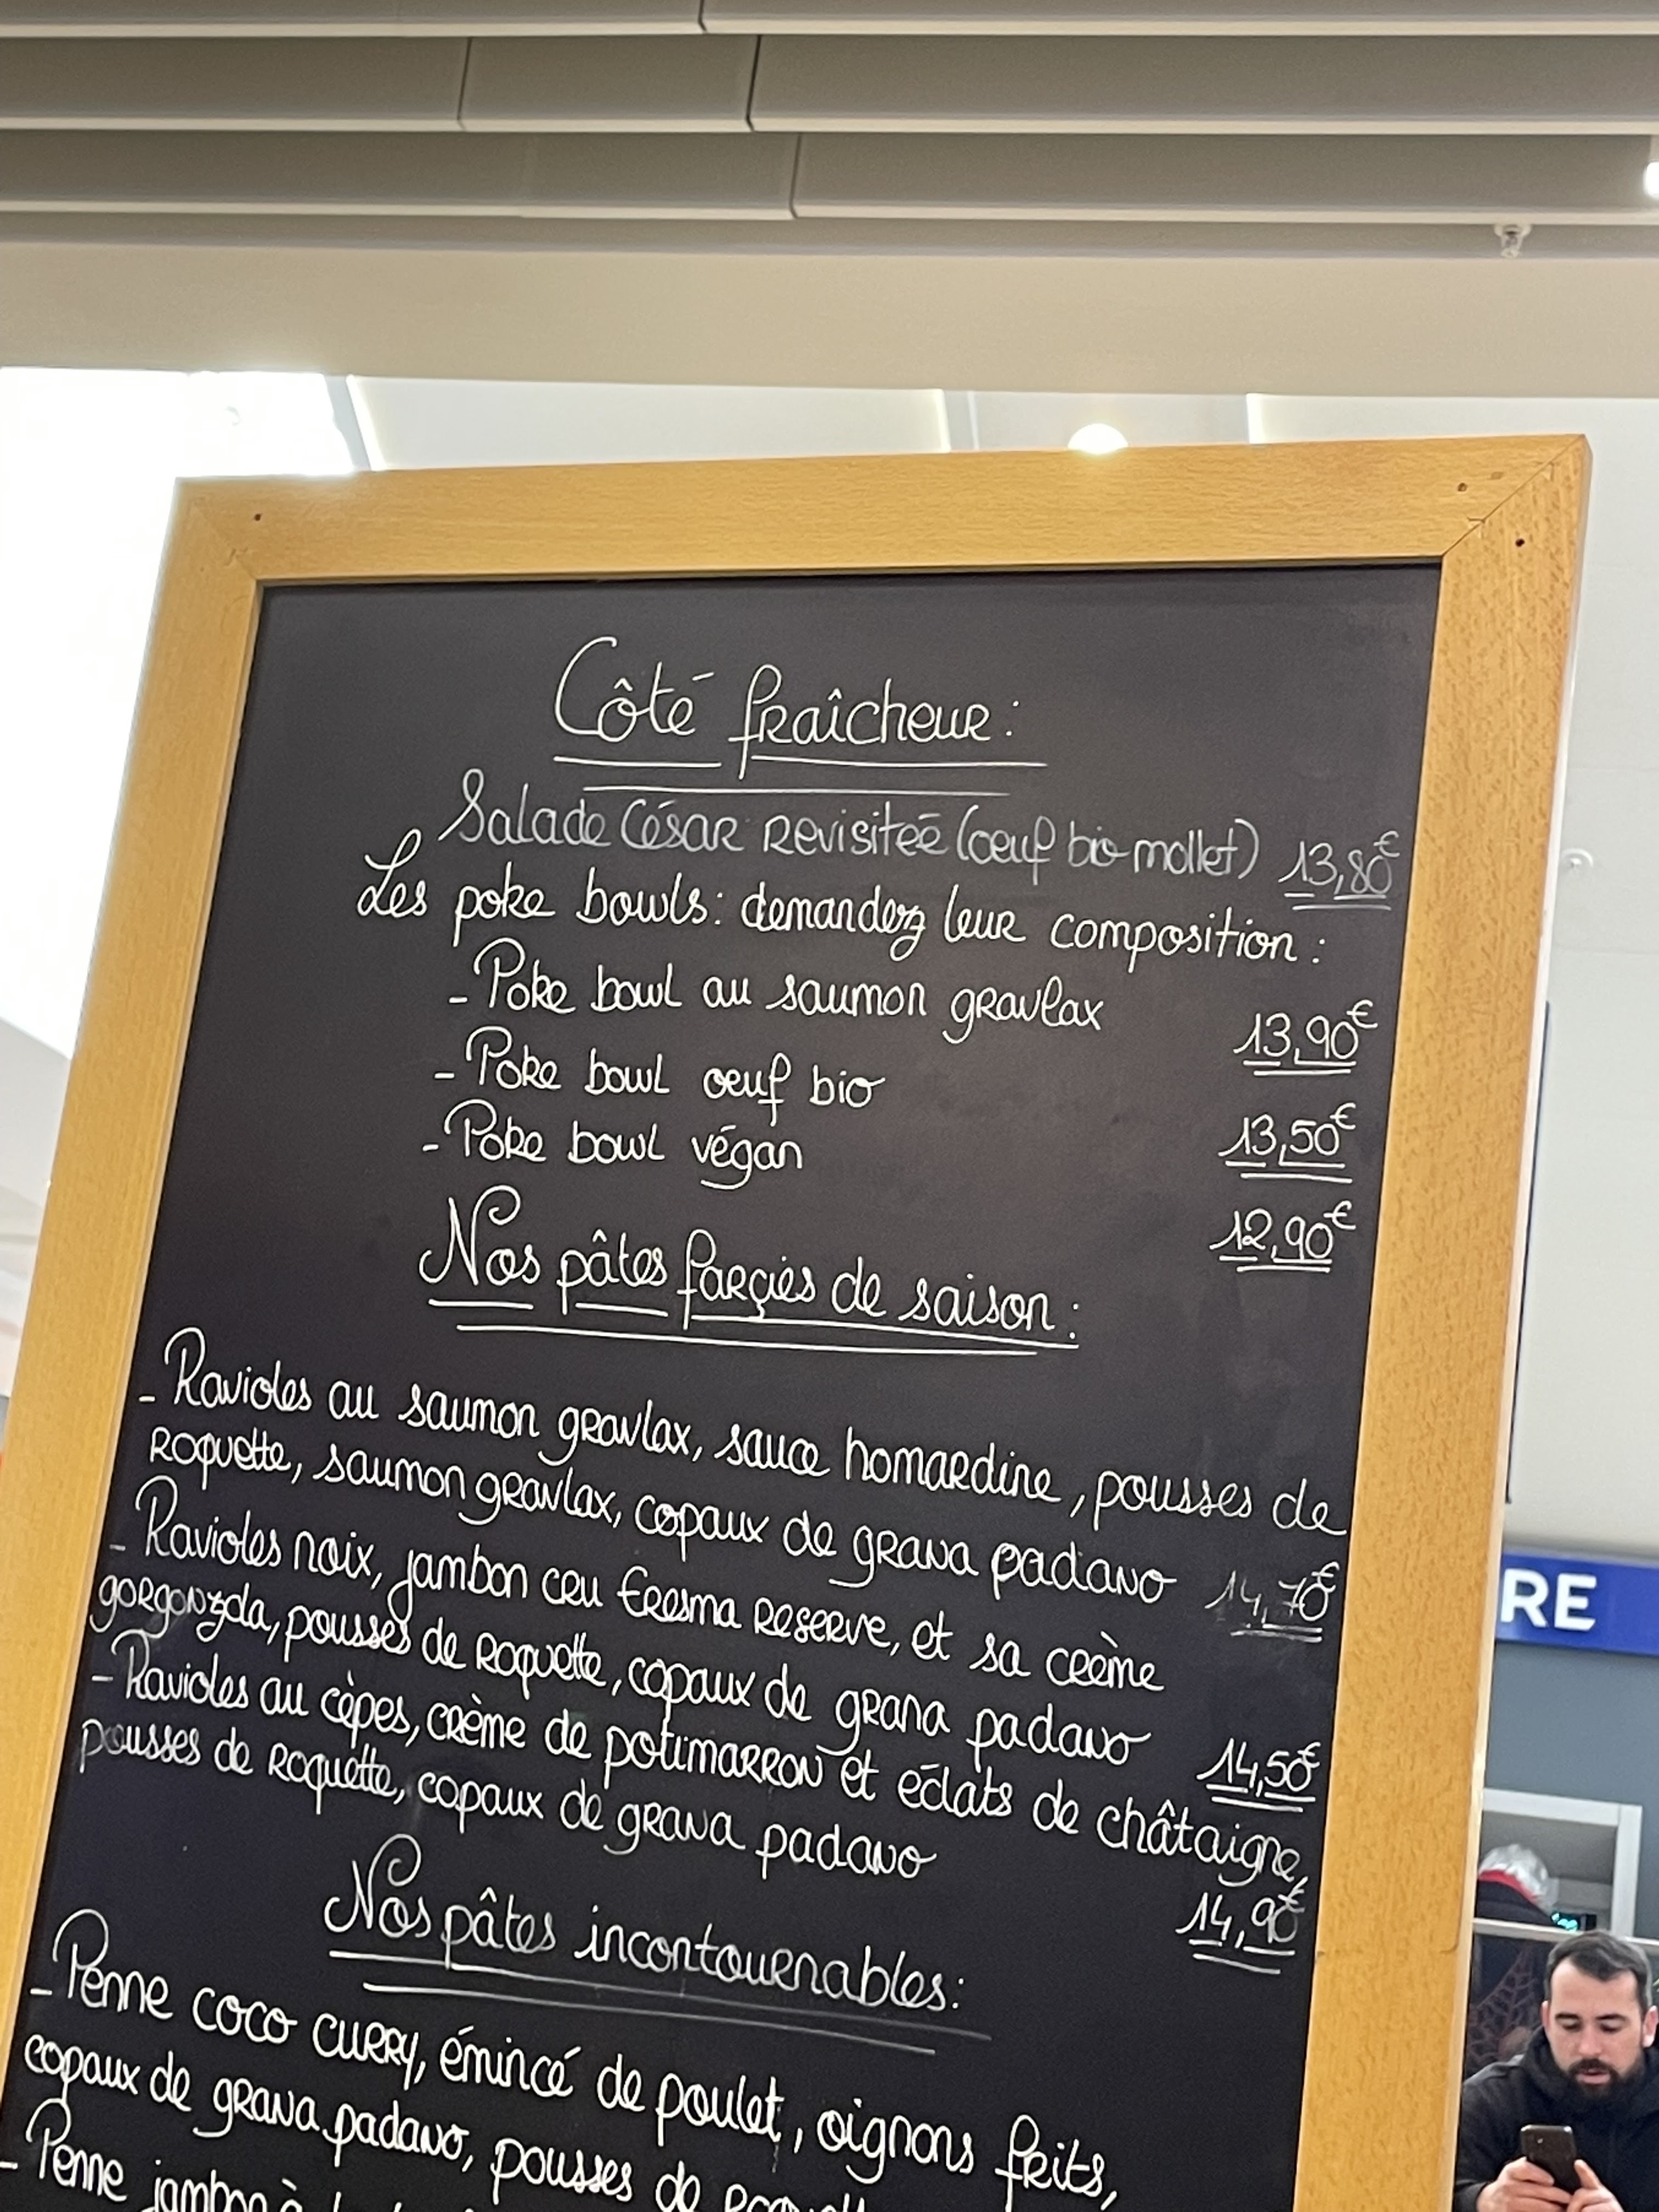 Côté fraîcheur :
Salade César revisiteé (œuf bio mollet) 13,80€
Les poke bowls : demandez leur composition :
- Poke bowl au saumon gravlax 13,90€
- Poke bowl œuf bio 13,50€
- Poke bowl végan 12,90€
Nos pâtes farçies de saison :
- Ravioles au saumon gravlax, sauce homardine, pousses de
roquette, saumon gravlax, copaux de grana padano 14,70€
- Ravioles noix, jambon cru Eresma Reserve, et sa crème
gorgonzola, pousses de roquette, copaux de grana padano 14,50€
- Ravioles au cèpes, crème de potimarron et éclats de châtaigne,
pousses de roquette, copaux de grana padano 14,90€
Nos pâtes incontournables :
- Penne coco curry, émincé de poulet, oignons frits,
copaux de grana padano, pousses de
- Penne jambon à
RE